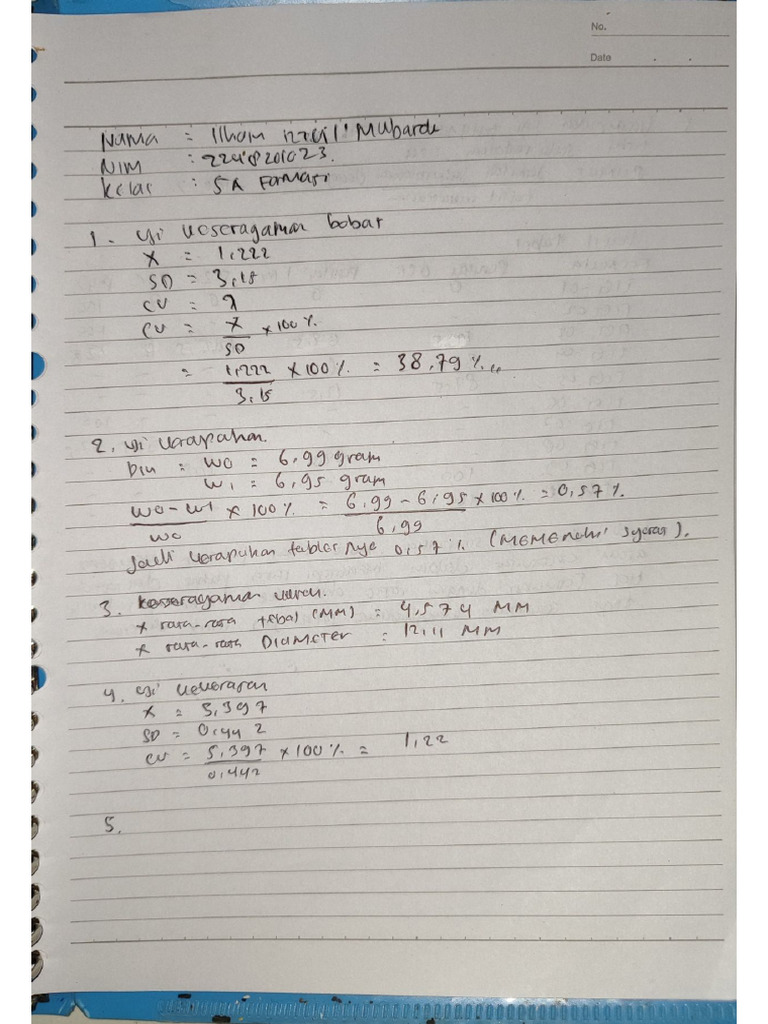 No.
Date
Nama : Ilham Mubarok
NIM :
Kelas : 5A Farmasi
1. Uji keseragaman bobot
X = 1,222
SD = 3,15
CV = ?
CV = X/SD x 100%
= 1,222/3,15 x 100% = 38,79%
2. Uji kerapuhan.
Din : W0 = 6,99 gram
W1 = 6,95 gram
W0-W1/W0 x 100% = 6,99 - 6,95/6,99 x 100% = 0,57%
Jadi kerapuhan tablet nya 0,57% (MEMENUHI syarat).
3. Keseragaman
x rata-rata tebal (MM) = 4,574 MM
x rata-rata DIAMETER = 12,11 MM
4. Uji kekerasan
X = 5,397
SD = 0,442
CV = 5,397/0,442 x 100% = 1,22
5.